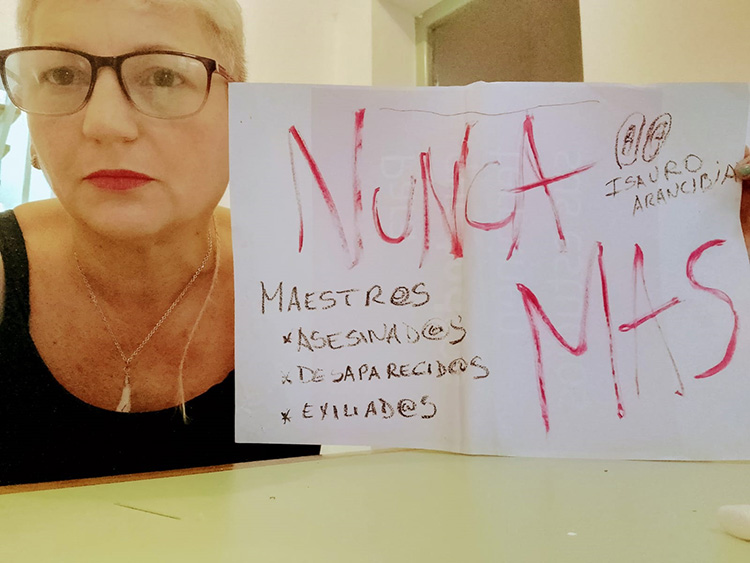 NUNCA
MAS
ISAURO
ARANCIBIA
MAESTR@S
*ASESINAD@S
*DESAPARECID@S
*EXILIAD@S